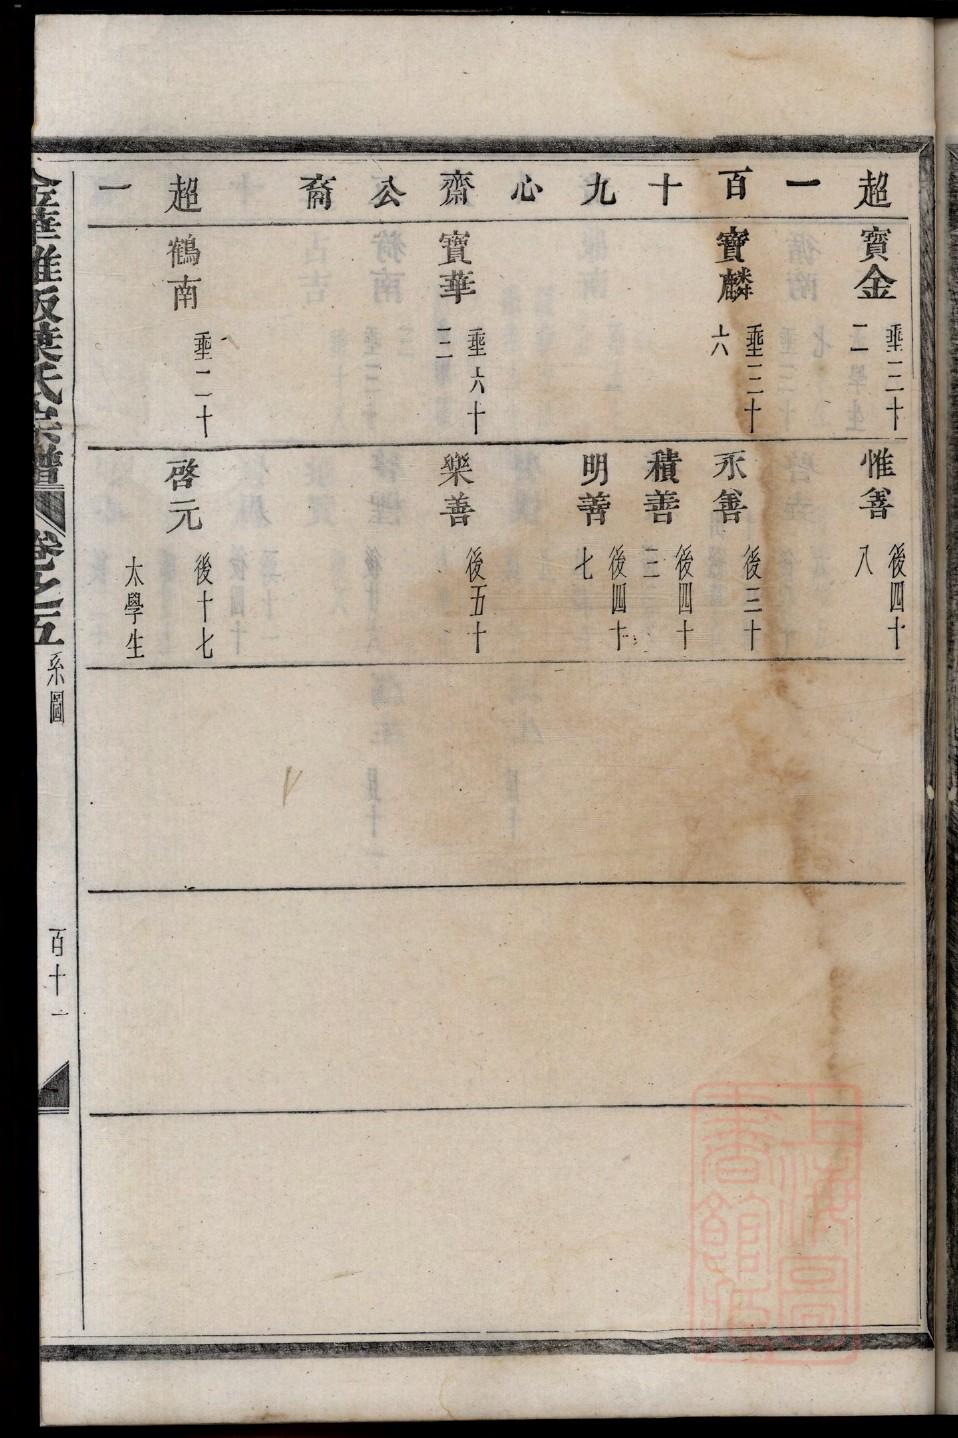 超一百十九心齋公裔超一
寶金
垂三十
二
寶麟
垂三十
六
寶華
垂六十
三
鶴南
垂二十
惟善
後四十
八
永善
後三十
積善
後四十
三
明善
後四十
七
樂善
後五十
啓元
後十七
太學生
金華雅畈葉氏宗譜
卷之五
系圖
百十一
上海圖
書館藏